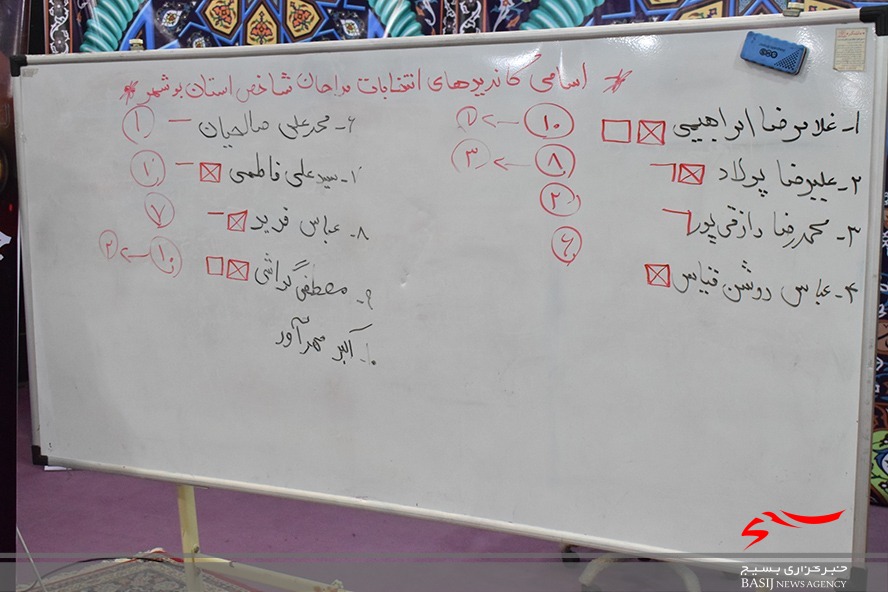 * اسامی کاندیدهای انتخابات مداحان شاخص استان بوشهر *
۱- غلامرضا ابراهیمی ۱۰ ← ۱
۲- علیرضا پولاد ۸ ← ۳
۳- محمدرضا ۲
۴- عباس روشن قیاس ۶
۶- محمدعلی صالحیان ۱
سیدعلی فاطمی
۸- عباس فرید ۷
۹- مصطفی گراشی ۱۰ ← ۲
۱۰- اکبر مهرآور
خبرگزاری بسیج
BASIJ NEWS AGENCY